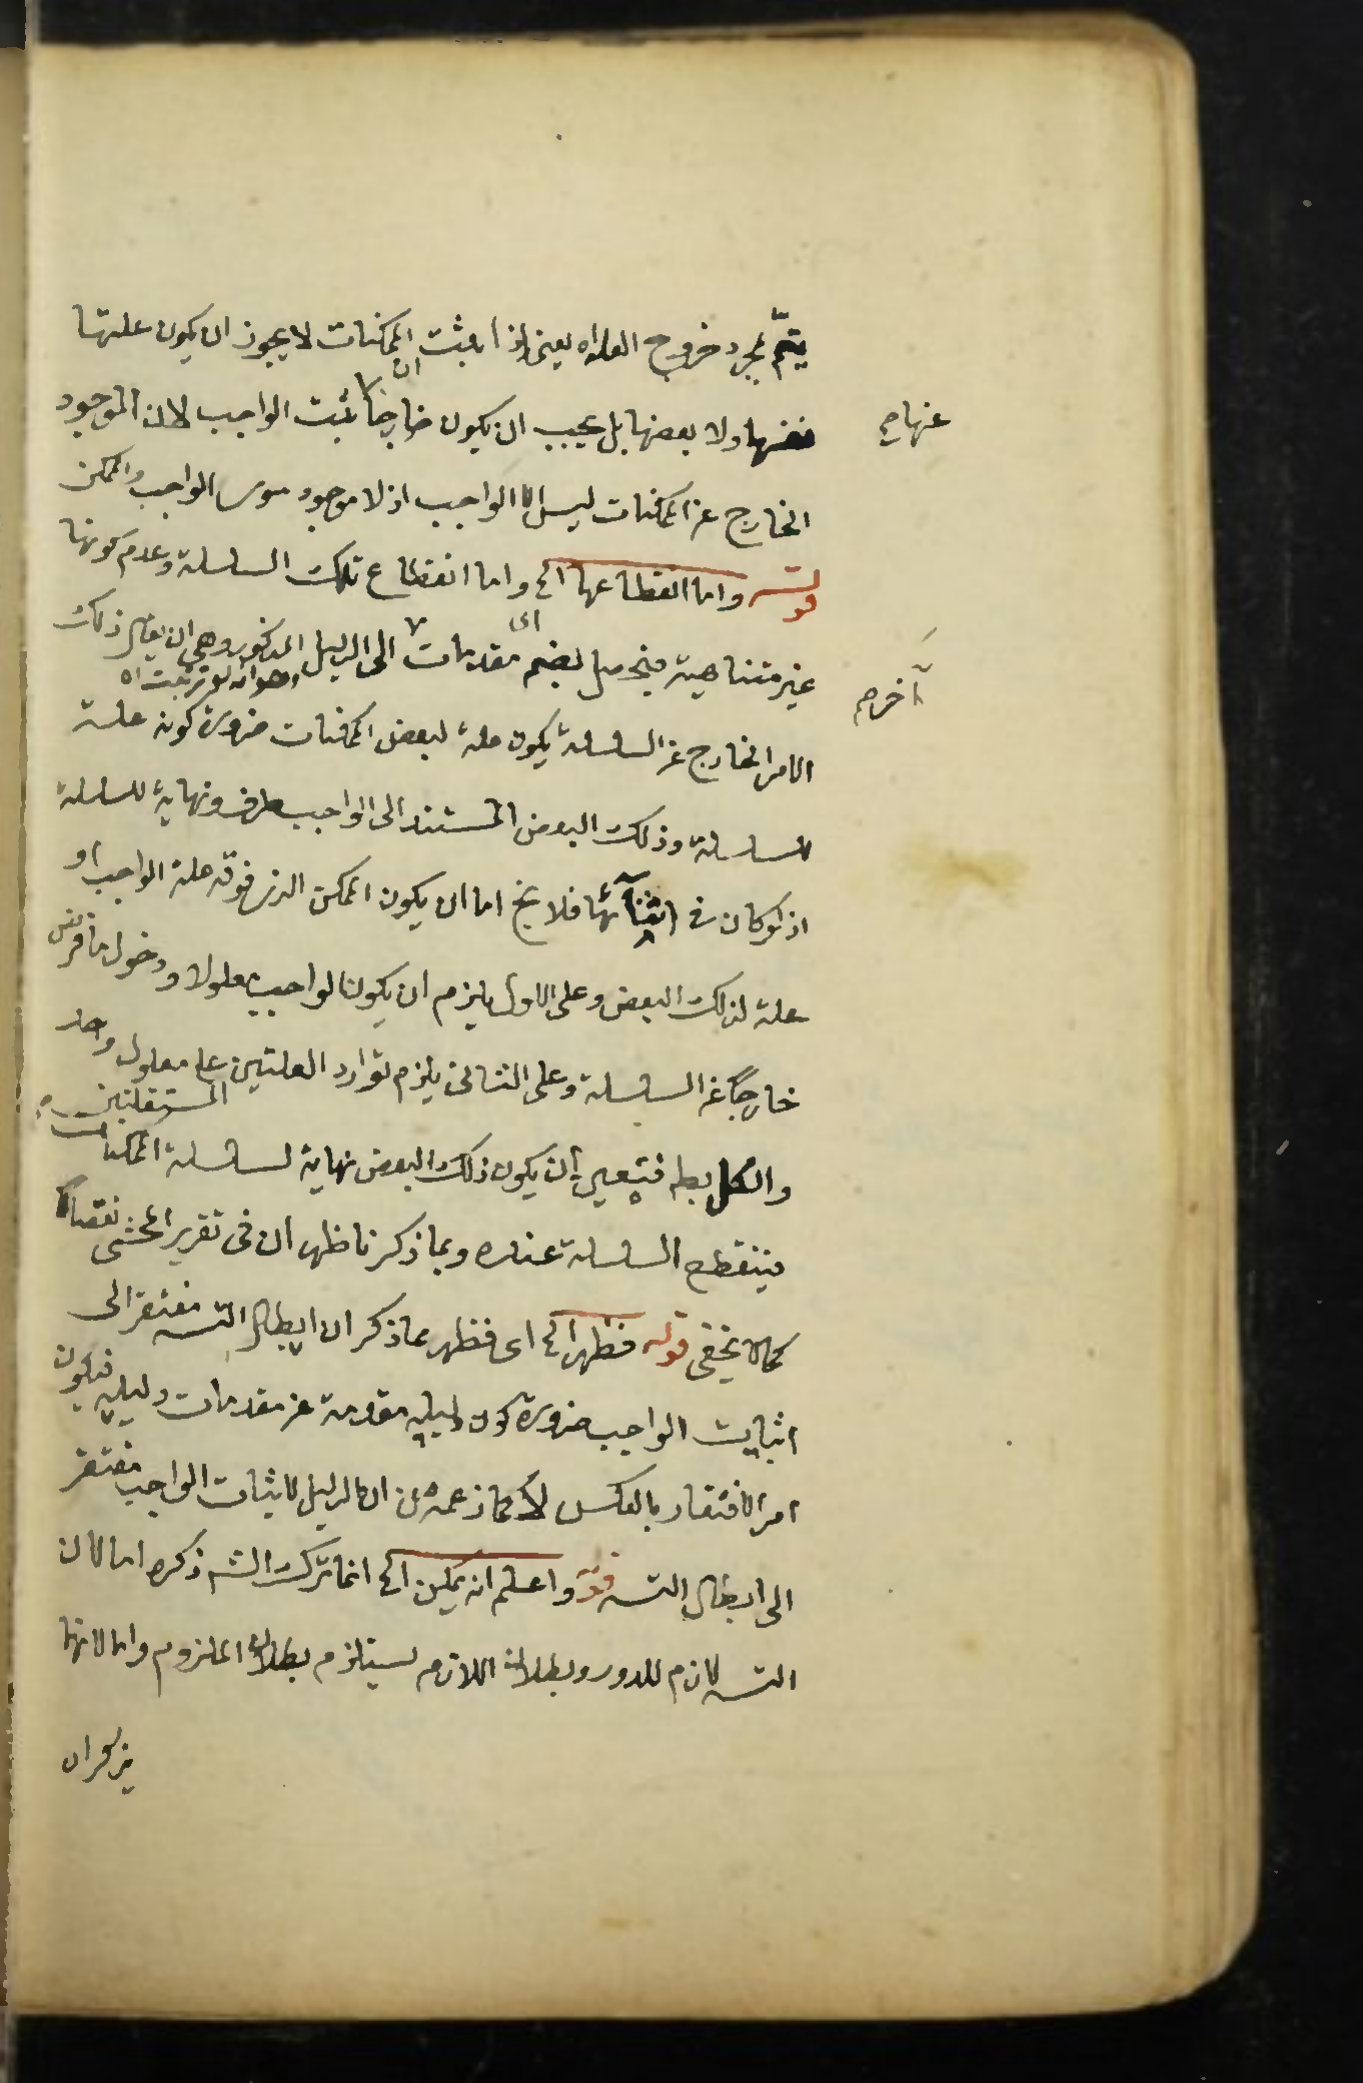 يتم بمجرد خروج العلة اه يعنى اذا ثبت ان الممكنات لا يجوز ان يكون علتها
نفسها ولا بعضها بل يجب ان يكون خارجا ثبت الواجب لان الموجود
عنها صح
الخارج عن الممكنات ليس الا الواجب اذ لا موجود سوى الواجب والممكن
قوله واما انقطاعها الخ واما انقطاع تلك السلسلة وعدم كونها
غير متناهية فيحصل بضم مقدمات الى الدليل المذكور وهى ان يقال ذلك
اى
وهو انه لو ترتبت اه
آخر صح
الامر الخارج عن السلسلة يكون علة لبعض الممكنات ضرورة كونه علة
للسلسلة وذلك البعض المستند الى الواجب طرف ونهاية للسلسلة
اذ لو كان فى اثنائها فلا يخ اما ان يكون الممكن الذى فوقه علة الواجب او
علة لذلك البعض وعلى الاول يلزم ان يكون الواجب معلولا ودخول ما فرض
خارجا عن السلسلة وعلى الثانى يلزم توارد العلتين على معلول واحد
المستقلتين
والكل بط فتعين ان يكون ذلك البعض نهاية لسلسلة الممكنات
فينقطع السلسلة عنده وبما ذكرنا ظهر ان فى تقرير المحشى نقصانا
كما لا يخفى قوله فظهر الخ اى فظهر بما ذكر ان ابطال التسه مفتقر الى
اثبات الواجب ضرورة كون دليله مقدمة من مقدمات دليله فيكون
امر الافتقار بالعكس لا كما زعمه من ان الدليل لاثبات الواجب مفتقر
الى ابطال التسه قوله واعلم انه يمكن الخ انما ترك الش ذكره اما لان
التسه لازم للدور وبطلان اللازم يستلزم بطلان الملزوم واما لانها
يذكران